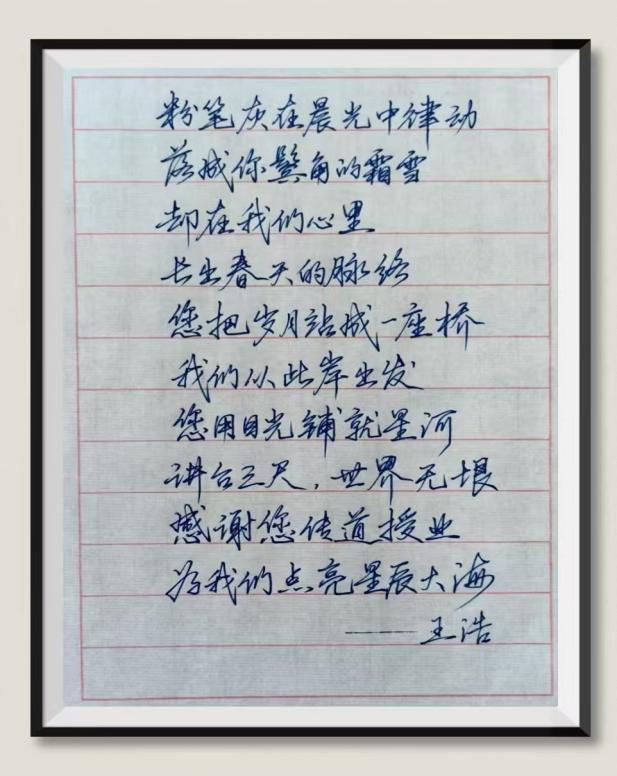 粉笔灰在晨光中律动
落成你鬓角的霜雪
却在我们心里
长出春天的脉络
您把岁月站成一座桥
我们从此岸出发
您用目光铺就星河
讲台三尺，世界无垠
感谢您传道授业
为我们点亮星辰大海
——王浩